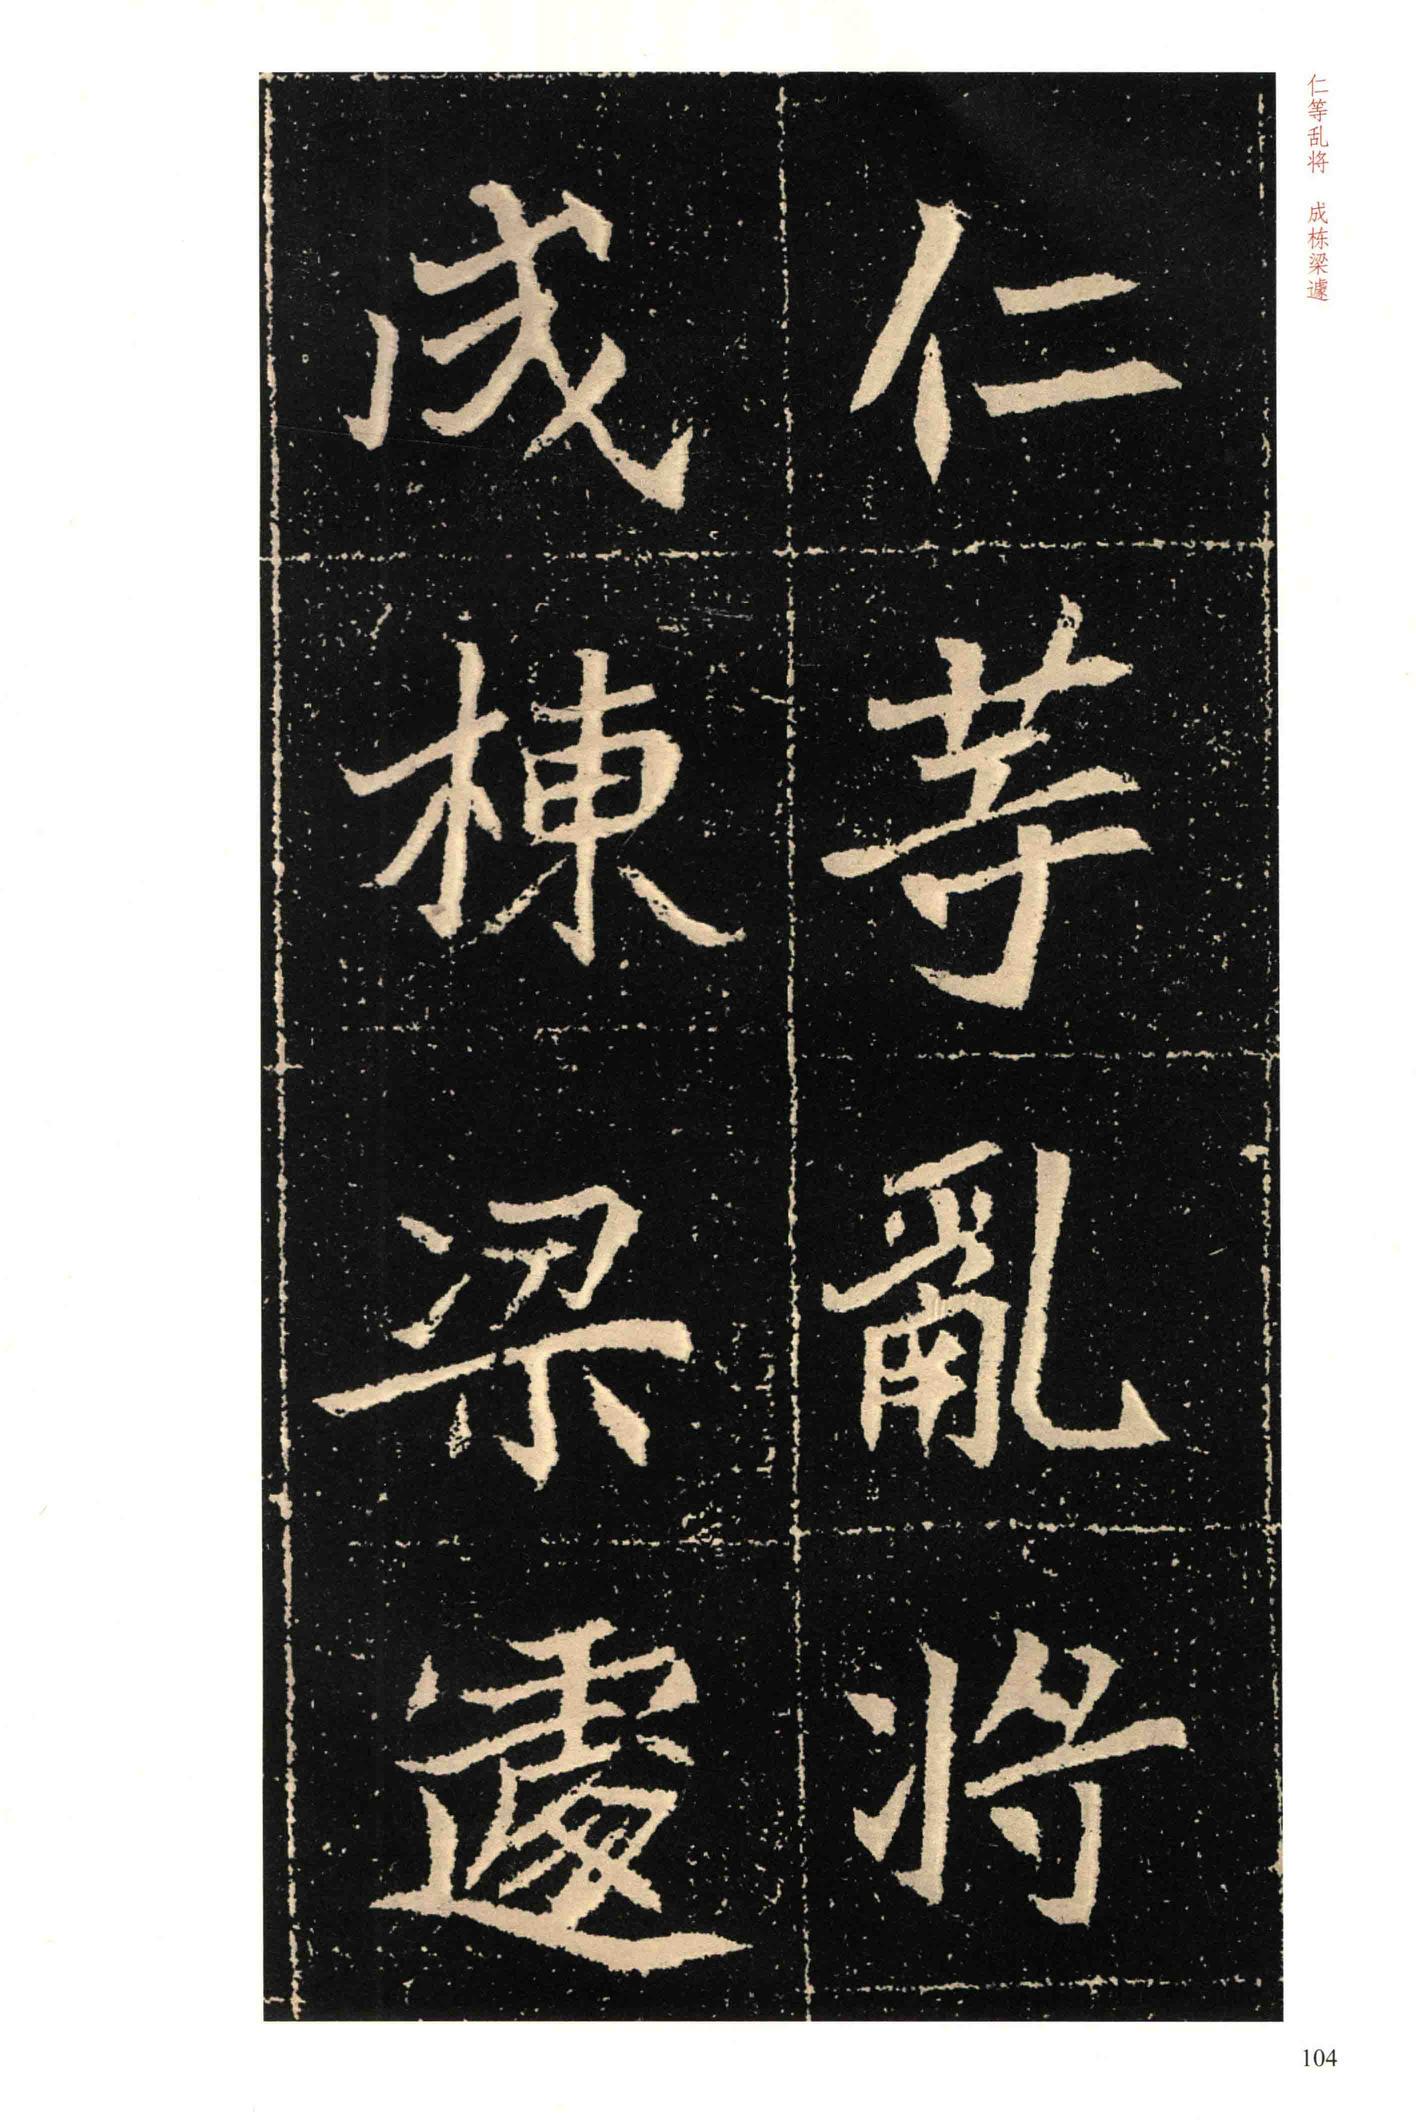 仁等乱将　成栋梁遽
仁等亂将
成棟梁遽
104